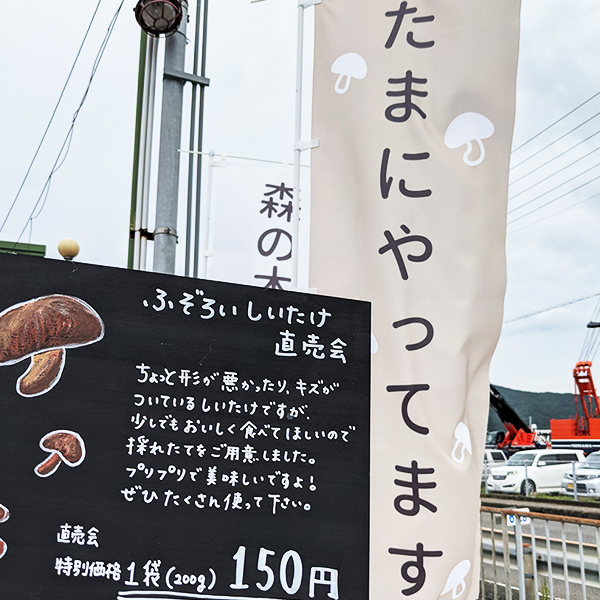 たまにやってます
森の
ふぞろいしいたけ
直売会
ちょっと形が悪かったり、キズが
ついているしいたけですが
少しでもおいしく食べてほしいので
採れたてをご用意しました。
プリプリで美味しいですよ!
ぜひたくさん使って下さい。
直売会
特別価格 1袋(200g) 150円